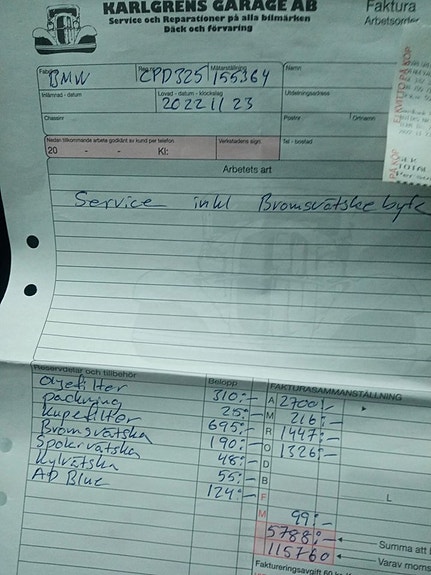 KARLGRENS GARAGE AB
Service och Reparationer på alla bilmärken
Däck och förvaring
Faktura
Arbetsorder
Fabrikat Reg.nr Mätarställning Namn
BMW CPD325 155364
Inlämnad - datum Lovad - datum - klockslag Utdelningsadress
20221123
Chassinr Postnr Ortnamn
Nedan tillkommande arbete godkänt av kund per telefon Verkstadens sign. Tel - bostad
20 - - Kl:
Arbetets art
Service inkl Bromsvätske byte
Reservdelar och tillbehör Belopp FAKTURASAMMANSTÄLLNING
Oljefilter 310:- A 2700:-
packning 25:- M 216:-
Kupefilter 695:- R 1447:-
Bromsvätska 190:- O 1326:-
Spolarvätska 48:- D
Kylvätska 55:- B
AD Blue 124:- F
L
M 99:-
5788:- Summa att
115760 Varav moms
Faktureringsavgift 60 kr